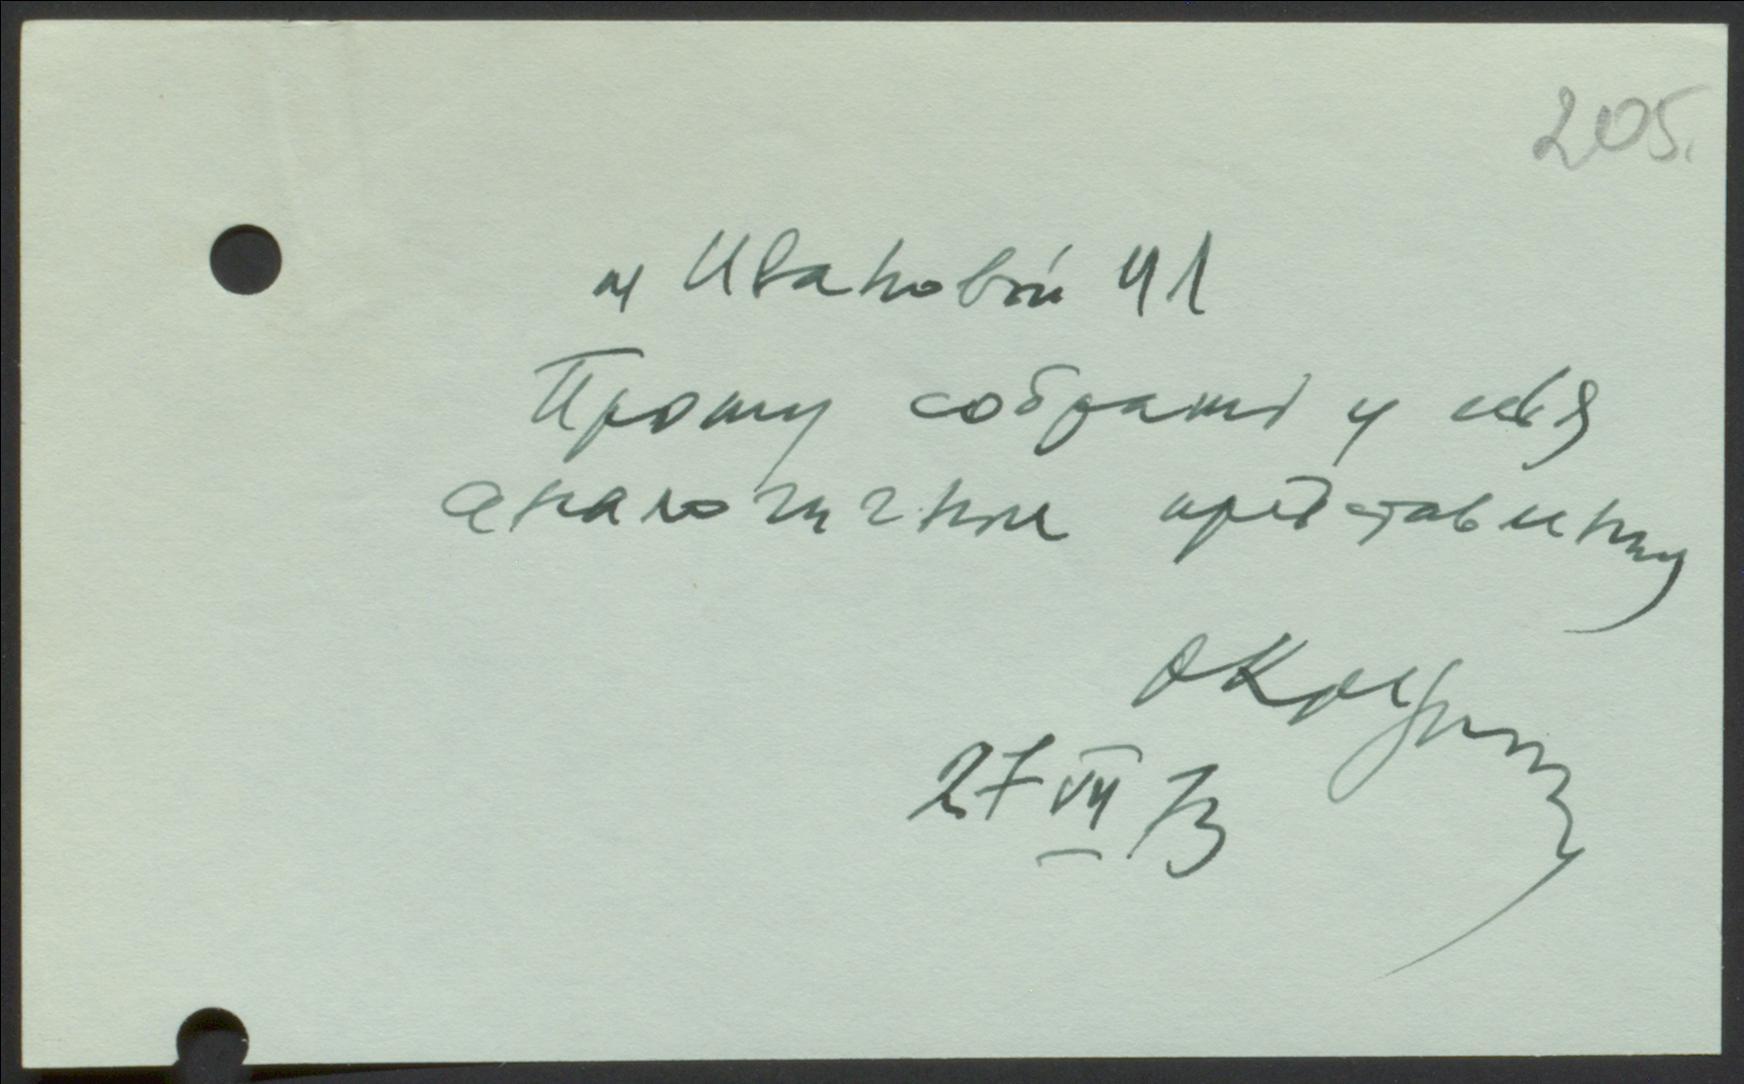 205.
т Ивановой И Л
Прошу собрать у себя
аналогичные представления
27 VII 73